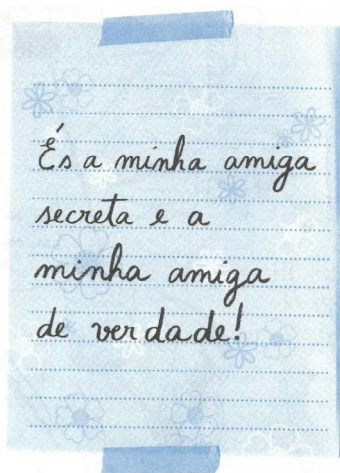 És a minha amiga
secreta e a
minha amiga
de verdade!